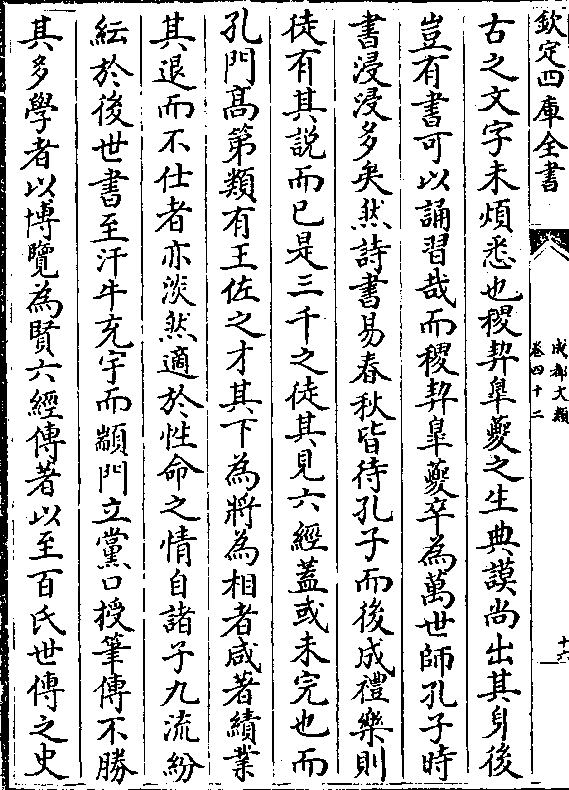 欽定四庫全書
成都文類
卷四十二
十六
古之文字未煩悉也稷契臯夔之生典謨尚出其身後
豈有書可以誦習哉而稷契臯夔卒為萬世師孔子時
書浸浸多矣然詩書易春秋皆待孔子而後成禮樂則
徒有其說而已是三千之徒其見六經蓋或未完也而
孔門髙第類有王佐之才其下為將為相者咸著績業
其退而不仕者亦淡然適於性命之情自諸子九流紛
紜於後世書至汗牛充宇而顓門立黨口授筆傳不勝
其多學者以博覽為賢六經傳著以至百氏世傳之史